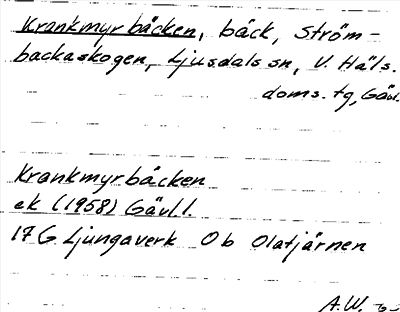 Krankmyrbäcken, bäck, Ström-
backaskogen, Ljusdals sn, V. Häls.
doms. tg, Gävl.
Krankmyrbäcken
ek (1958) Gävl. l.
17 G Ljungaverk Ob Olatjärnen
A.W.